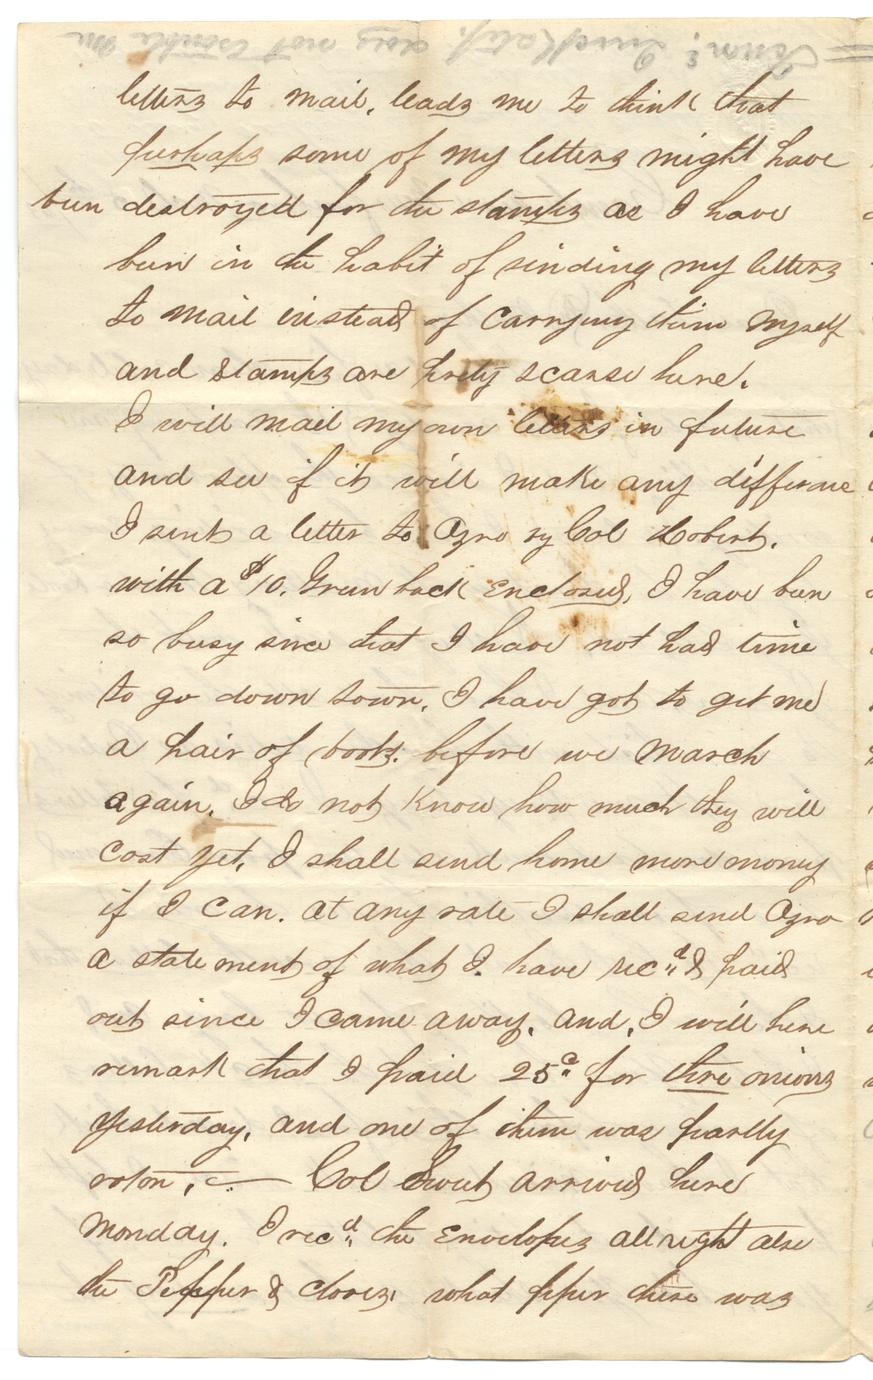 Tenn? Quick step. does not trouble me
letters to mail, leads me to think that
perhaps some of my letters might have
been destroyed for the stamps as I have
been in the habit of sending my letters
to mail instead of carrying them myself
and stamps are prety scarse here.
I will mail my own letters in future
and see if it will make any difference
I sent a letter to Azro by Col Hobert.
with a $10. Green back Enclosed, I have been
so busy since that I have not had time
to go down town, I have got to get me
a pair of boots. before we march
again. I do not know how much they will
cost yet, I shall send home more money
if I can. at any rate I shall send Azro
a statement of what I have recd & paid
out since I came away. and, I will here
remark that I paid 25c for three onions
yesterday, and one of them was partly
roton, — Col Sweet arrived here
Monday. I recd the Envelopes all right also
the Pepper & cloves, what pper there was